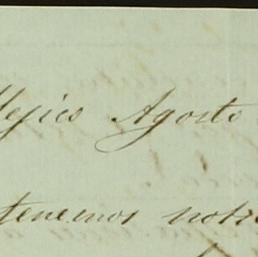 Mejico Agosto
tenemos notic